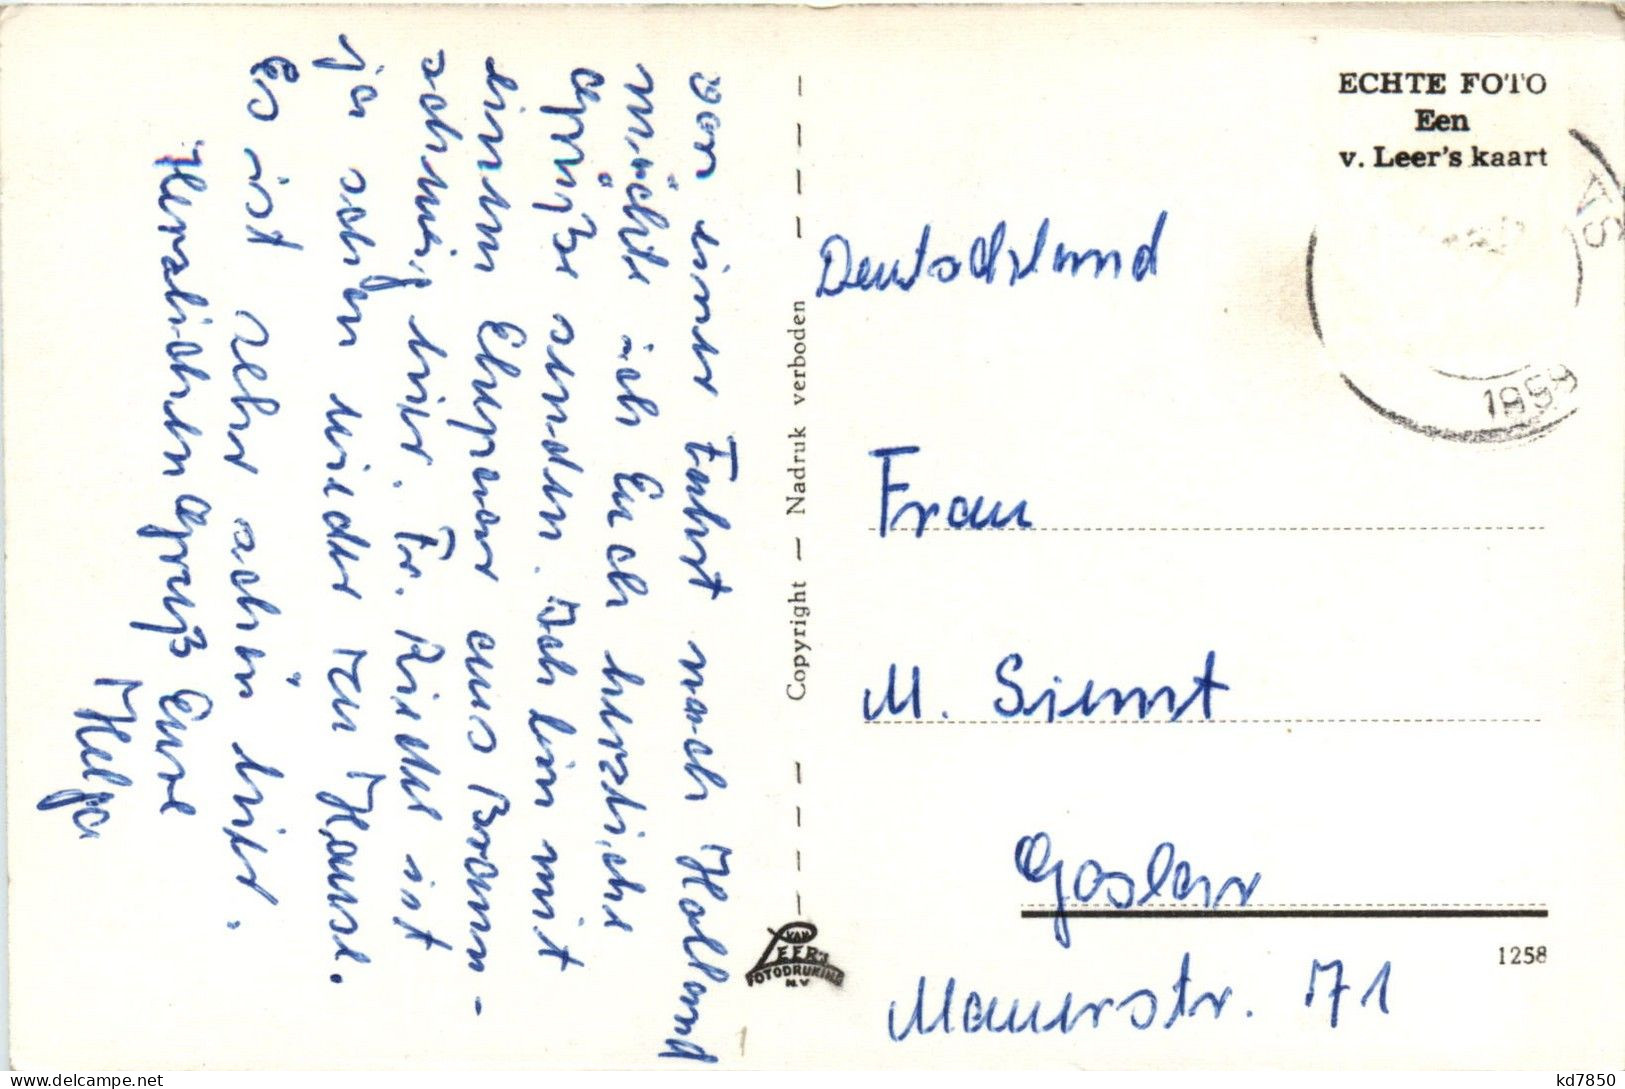 von einer Fahrt nach Holland
möchte ich Euch herzliche
Grüße senden. Ich bin mit
einem Ehepaar aus Braun-
schweig hier. Fr. Riedel ist
ja schon wieder zu Hause.
Es ist sehr schön hier.
Herzlichen Gruß Eure
Helga
Copyright — Nadruk verboden
VAN
LEER'S
FOTODRUKIND.
N.V.
ECHTE FOTO
Een
v. Leer's kaart
1959
Deutschland
Frau
M. Siemt
Goslar
Mauerstr. 71
1258
kd7850